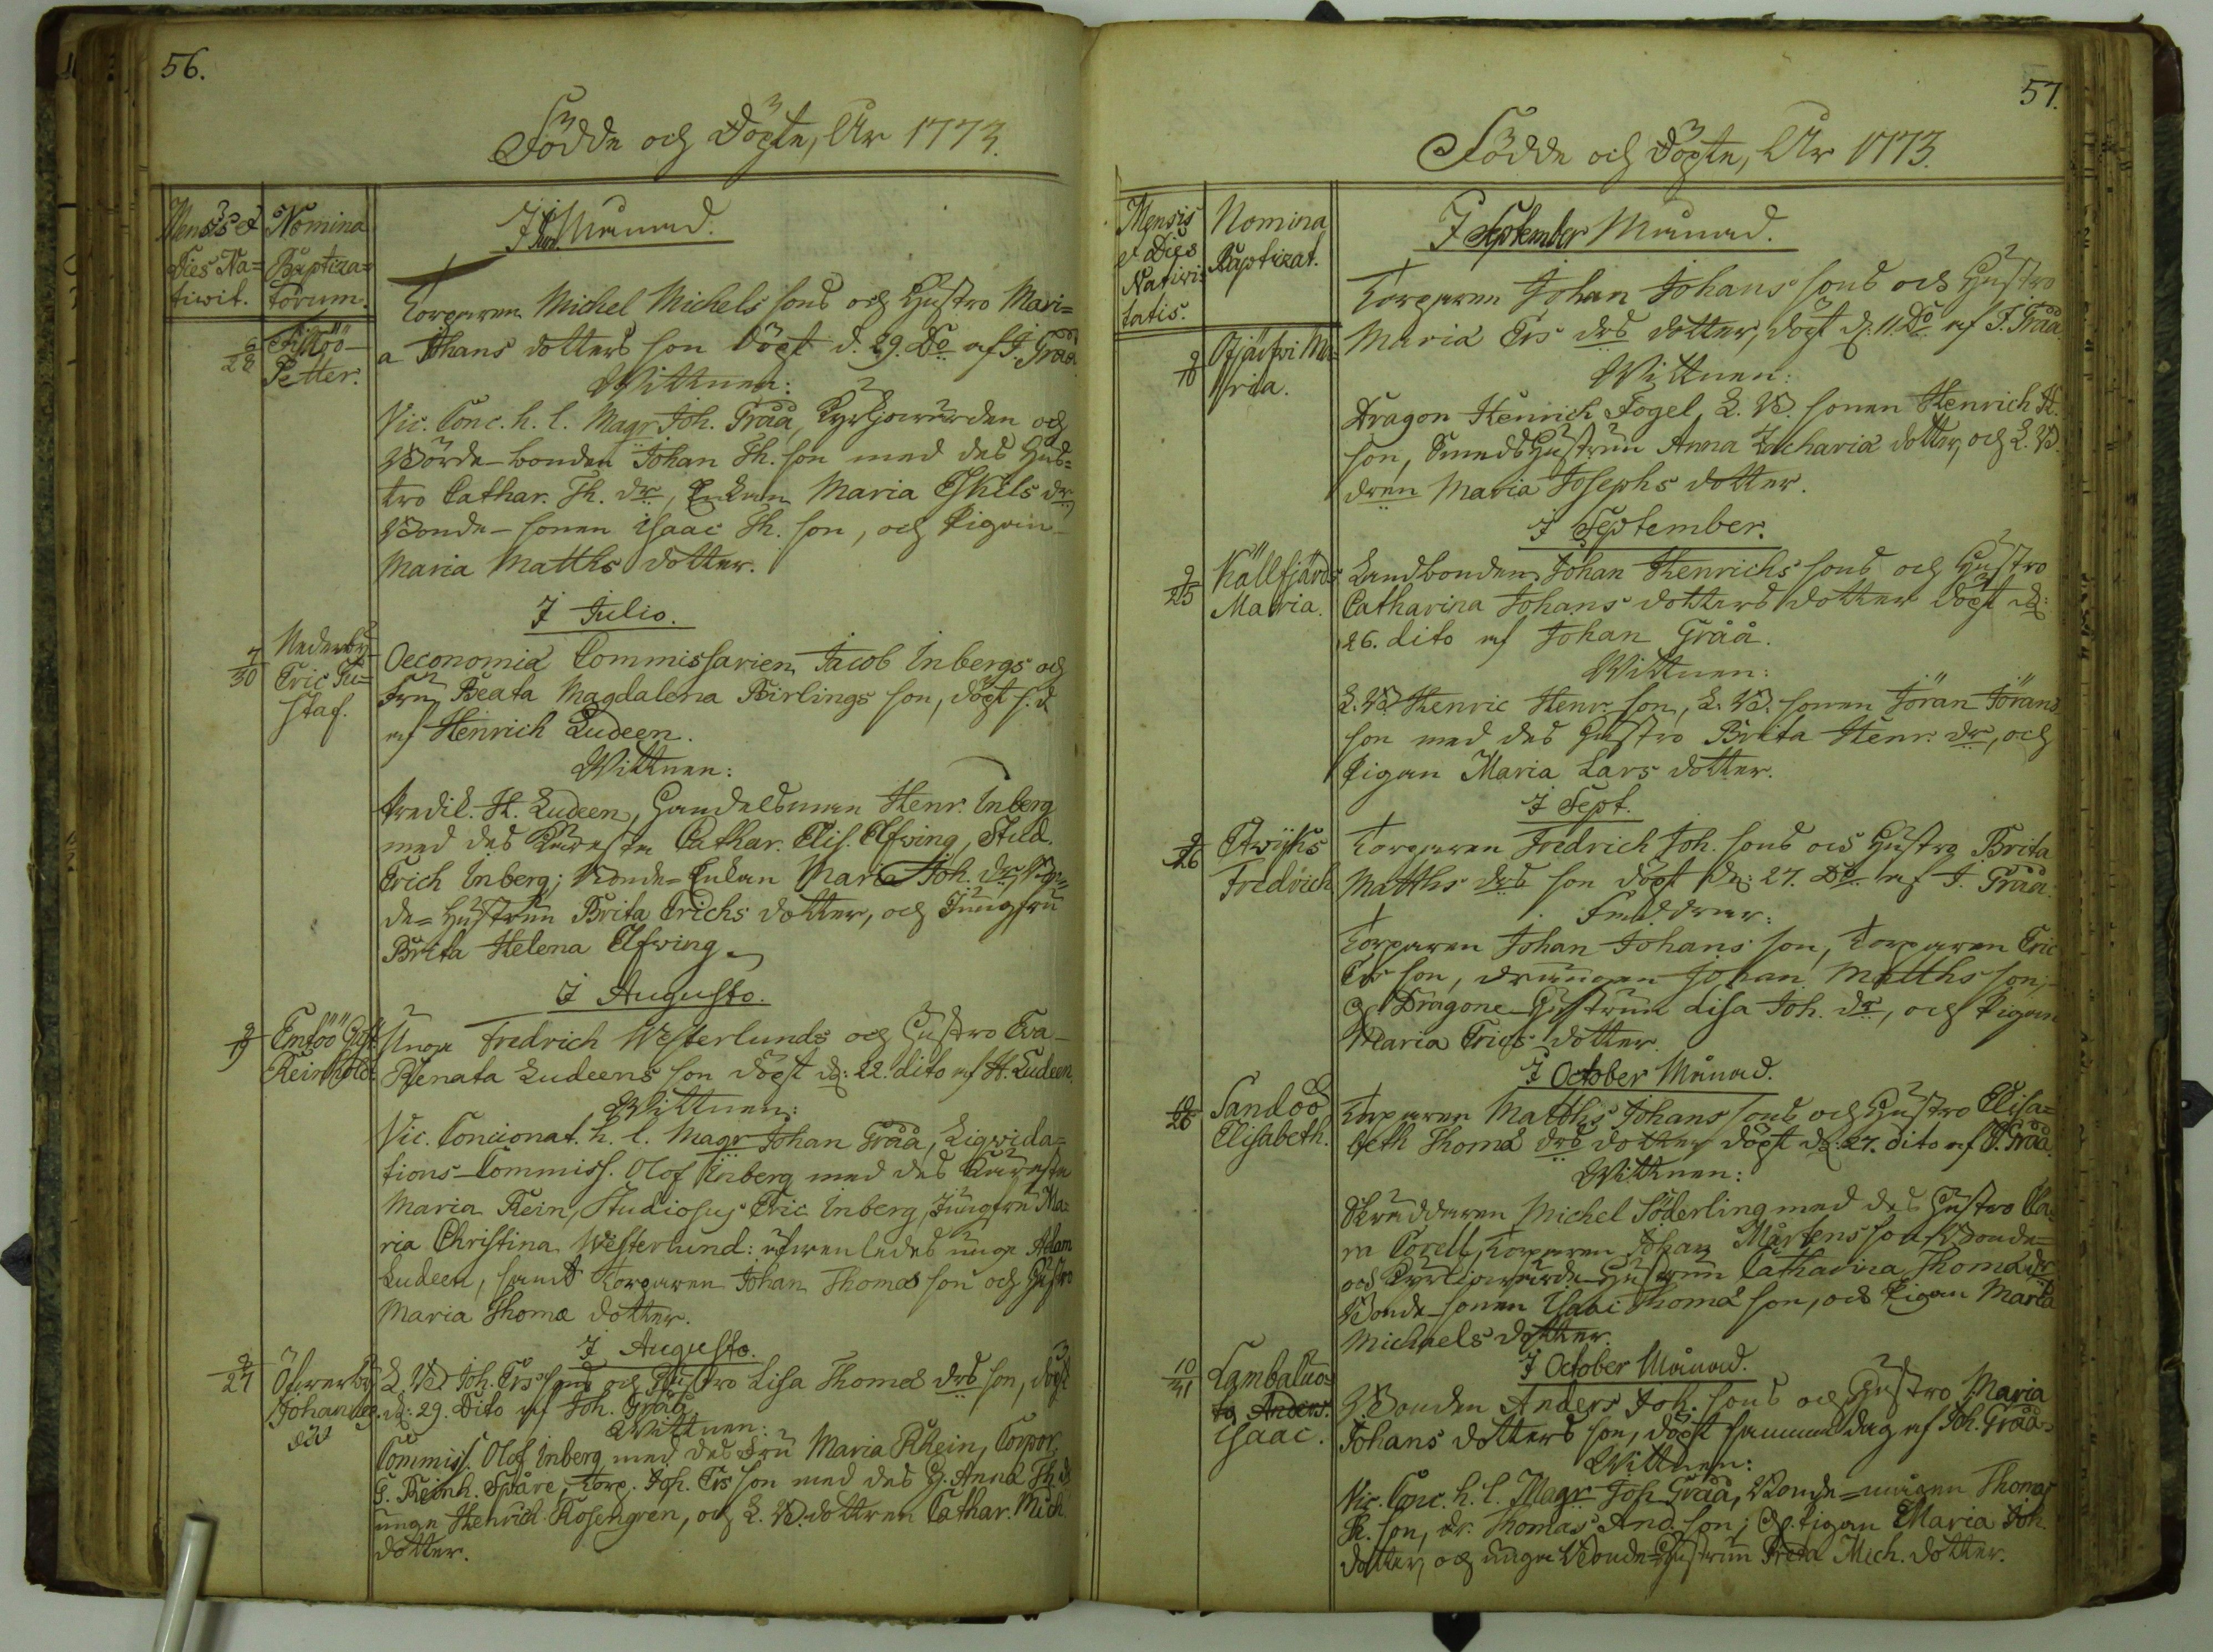 56.
Födde och Döpte, År 1773.
Mensis et
Dies Na=
tivit.
Nomina
Baptiza=
torum.
I Junii Månad.
6/28
Fillöö
Petter.
Torparen Michel Michels sons och Hustro Mari=
a Johans dotters son döpt d. 29. Do af J. Gråå
Wittnen:
Vic. Conc. h. l. Magr Joh. Gråå, Kyrkjowärden och
Börde-bonden Johan Th. son med des Hus=
tro Cathar. Th. dr, Enkan Maria Eskils dr
Bonde-sonen Isaac Th. son, och Pigan
Maria Matths dotter.
I Julio.
7/30
Nederby
Eric Gu=
staf.
Oeconomiæ Commissarien Jacob Inbergs och
Fru Beata Magdalena Birlings son, döpt s. d.
af Henrich Ludeen.
Wittnen:
Predik. H. Ludeen, Handelsman Henr. Inberg
med des Käresta Cathar. Elis. Elfving, Stud.
Erich Inberg; Bonde-Enkan Maria Joh. dr, Bon=
de-Hustrun Brita Erichs dotter, och Jungfru
Brita Helena Elfving
I Augusto.
8/19
Emsöö Gust.
Reinhold.
Unge Fredrich Westerlunds och Hustro Eva
Renata Ludeens son döpt d: 22. dito af H. Ludeen.
Wittnen:
Vic. Concionat. h. l. Magr Johan Gråå, Liqvida=
tions-Commiss. Olof Inberg med des Käresta
Maria Rein, Studiosus Eric Inberg, Jungfru Ma=
ria Christina Westerlund: äfwenledes unge Adam
Ludeen, samt Torparen Johan Thomæ son och Hustro
Maria Thomæ dotter.
I Augusto.
8/27
Öfwerby
Johannes.
L. B. Joh. Ers sons och Hustro Lisa Thomæ drs son, döpt
d: 29. Dito af Joh. Gråå
Wittnen:
Commiss. Olof Inberg med des Fru Maria Rhein, Corpor.
G. Reinh. Spåre, Torp. Joh. Ers son med des H. Anna Th. dr
unge Henrich Rosengren, och L. B. dottren Cathar. Mich.
dotter.
57.
Födde och Döpte, År 1773.
Mensis
et Dies
Nativi=
tatis.
Nomina
Baptizat.
I September Månad.
9/10
Ma=
ria.
Torparen Johan Johans sons och Hustro
Maria Ers drs dotter, döpt d. 11. Do af J. Gråå.
Wittnen:
Dragon Henrich Fogel, L. B. sonen Henrich H.
son, Smeds Hustrun Anna Zachariæ dotter, och L. B.
dren Maria Josephs dotter.
I September.
9/25
Källfjärds
Maria.
Landbonden Johan Henrichs sons och Hustro
Catharina Johans dotters dotter döpt d:
26. dito af Johan Gråå.
Wittnen:
L. B. Henric Henr. son, L. B. sonen Jöran Jörans
son med des Hustro Brita Henr. dr, och
Pigan Maria Lars dotter.
I Sept.
9/26
Fredrich
Torparen Fredrich Joh. sons och Hustro Brita
Matths drs son döpt d: 27. Do af J. Gråå.
Faddrar:
Torparen Johan Johans son, Torparen Eric
Ers son, drängen Johan Matths son,
Dragone Hustrun Lisa Joh. dr, och Pigan
Maria Erics dotter.
I October Månad.
10/26
Sandöö
Elisabeth.
Torparen Matths Johans sons och Hustro Elisa=
beth Thomæ drs dotter döpt d: 27. dito af J. Gråå.
Wittnen:
Skräddaren Michel Söderling med des Hustro Ca=
ra Corell, Torparen Johan Mårtens son, Bonde=
och Kyrkiowärde-Hustrun Catharina Thomæ dr
Bonde-sonen Isaac Thomæ son, och Pigan Maria
Michaels dotter.
I October Månad.
10/31
Lambaluo=
to Anders.
Isaac.
Bonden Anders Joh. sons och Hustro Maria
Johans dotters son, döpt samma dag af Joh. Gråå.
Wittnen:
Vic. Conc. h. l. Magr Joh Gråå, Bonde-mågen Thomas
Th. son, dr. Thomas And. son; Pigan Maria Joh.
dotter, och unga Bonde-Hustrun Mich. dotter.